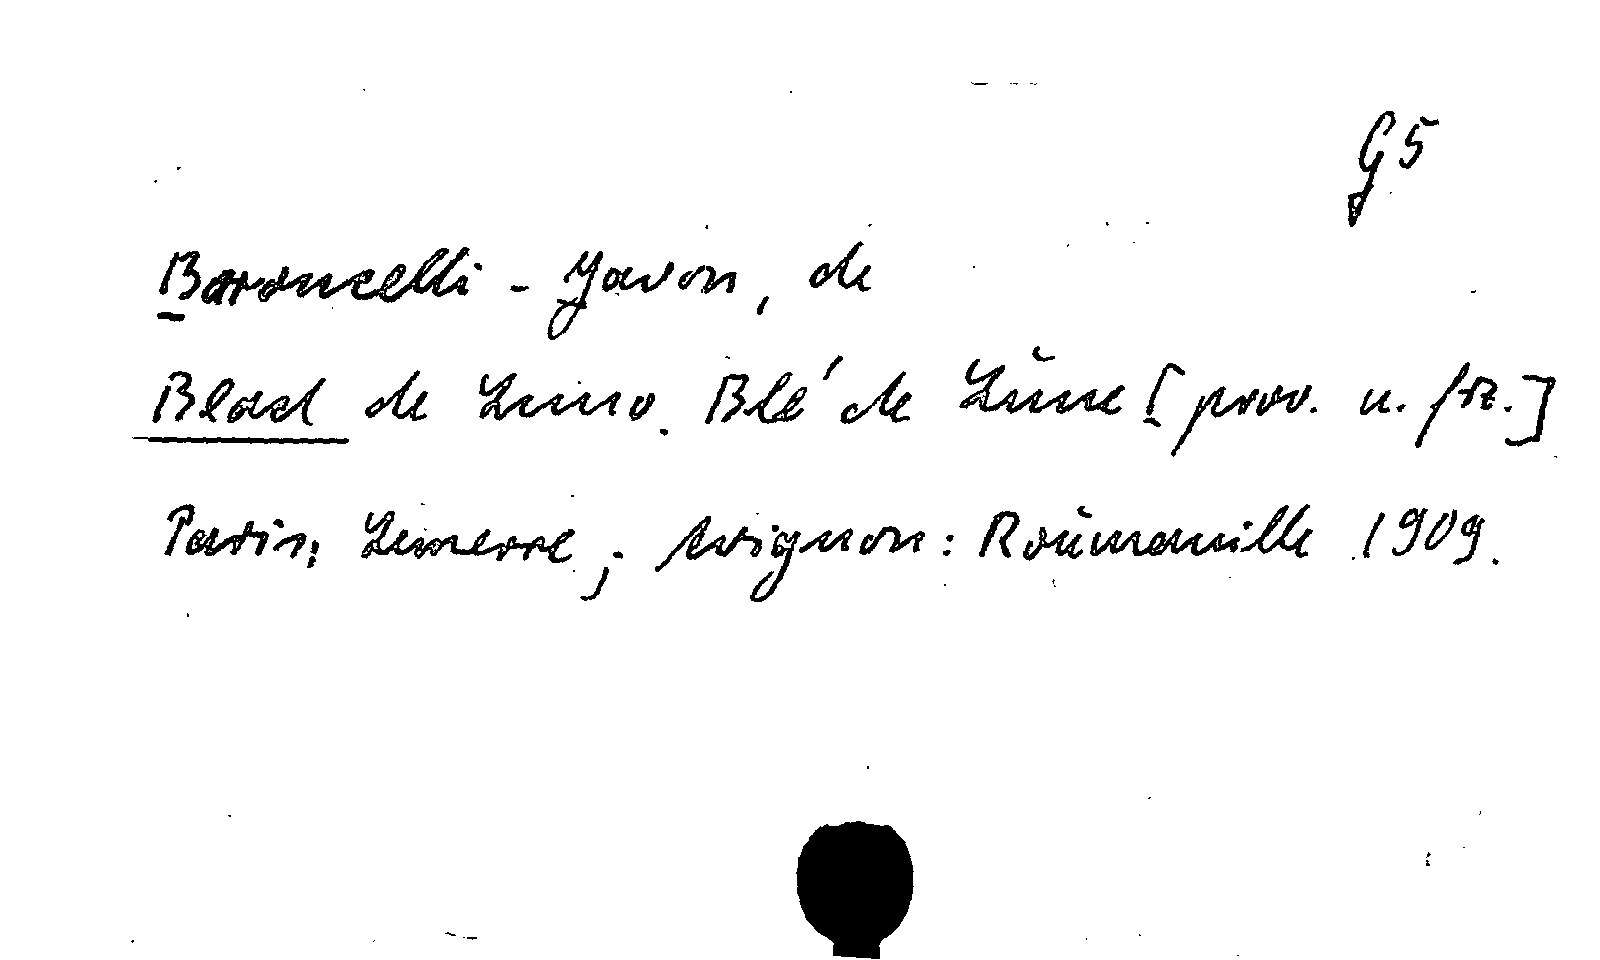 G5
Baroncelli-Javon, de
Blad de Luno. Blé de Lune [prov. u. frz.]
Paris: Lemerre; Avignon: Roumanille 1909.